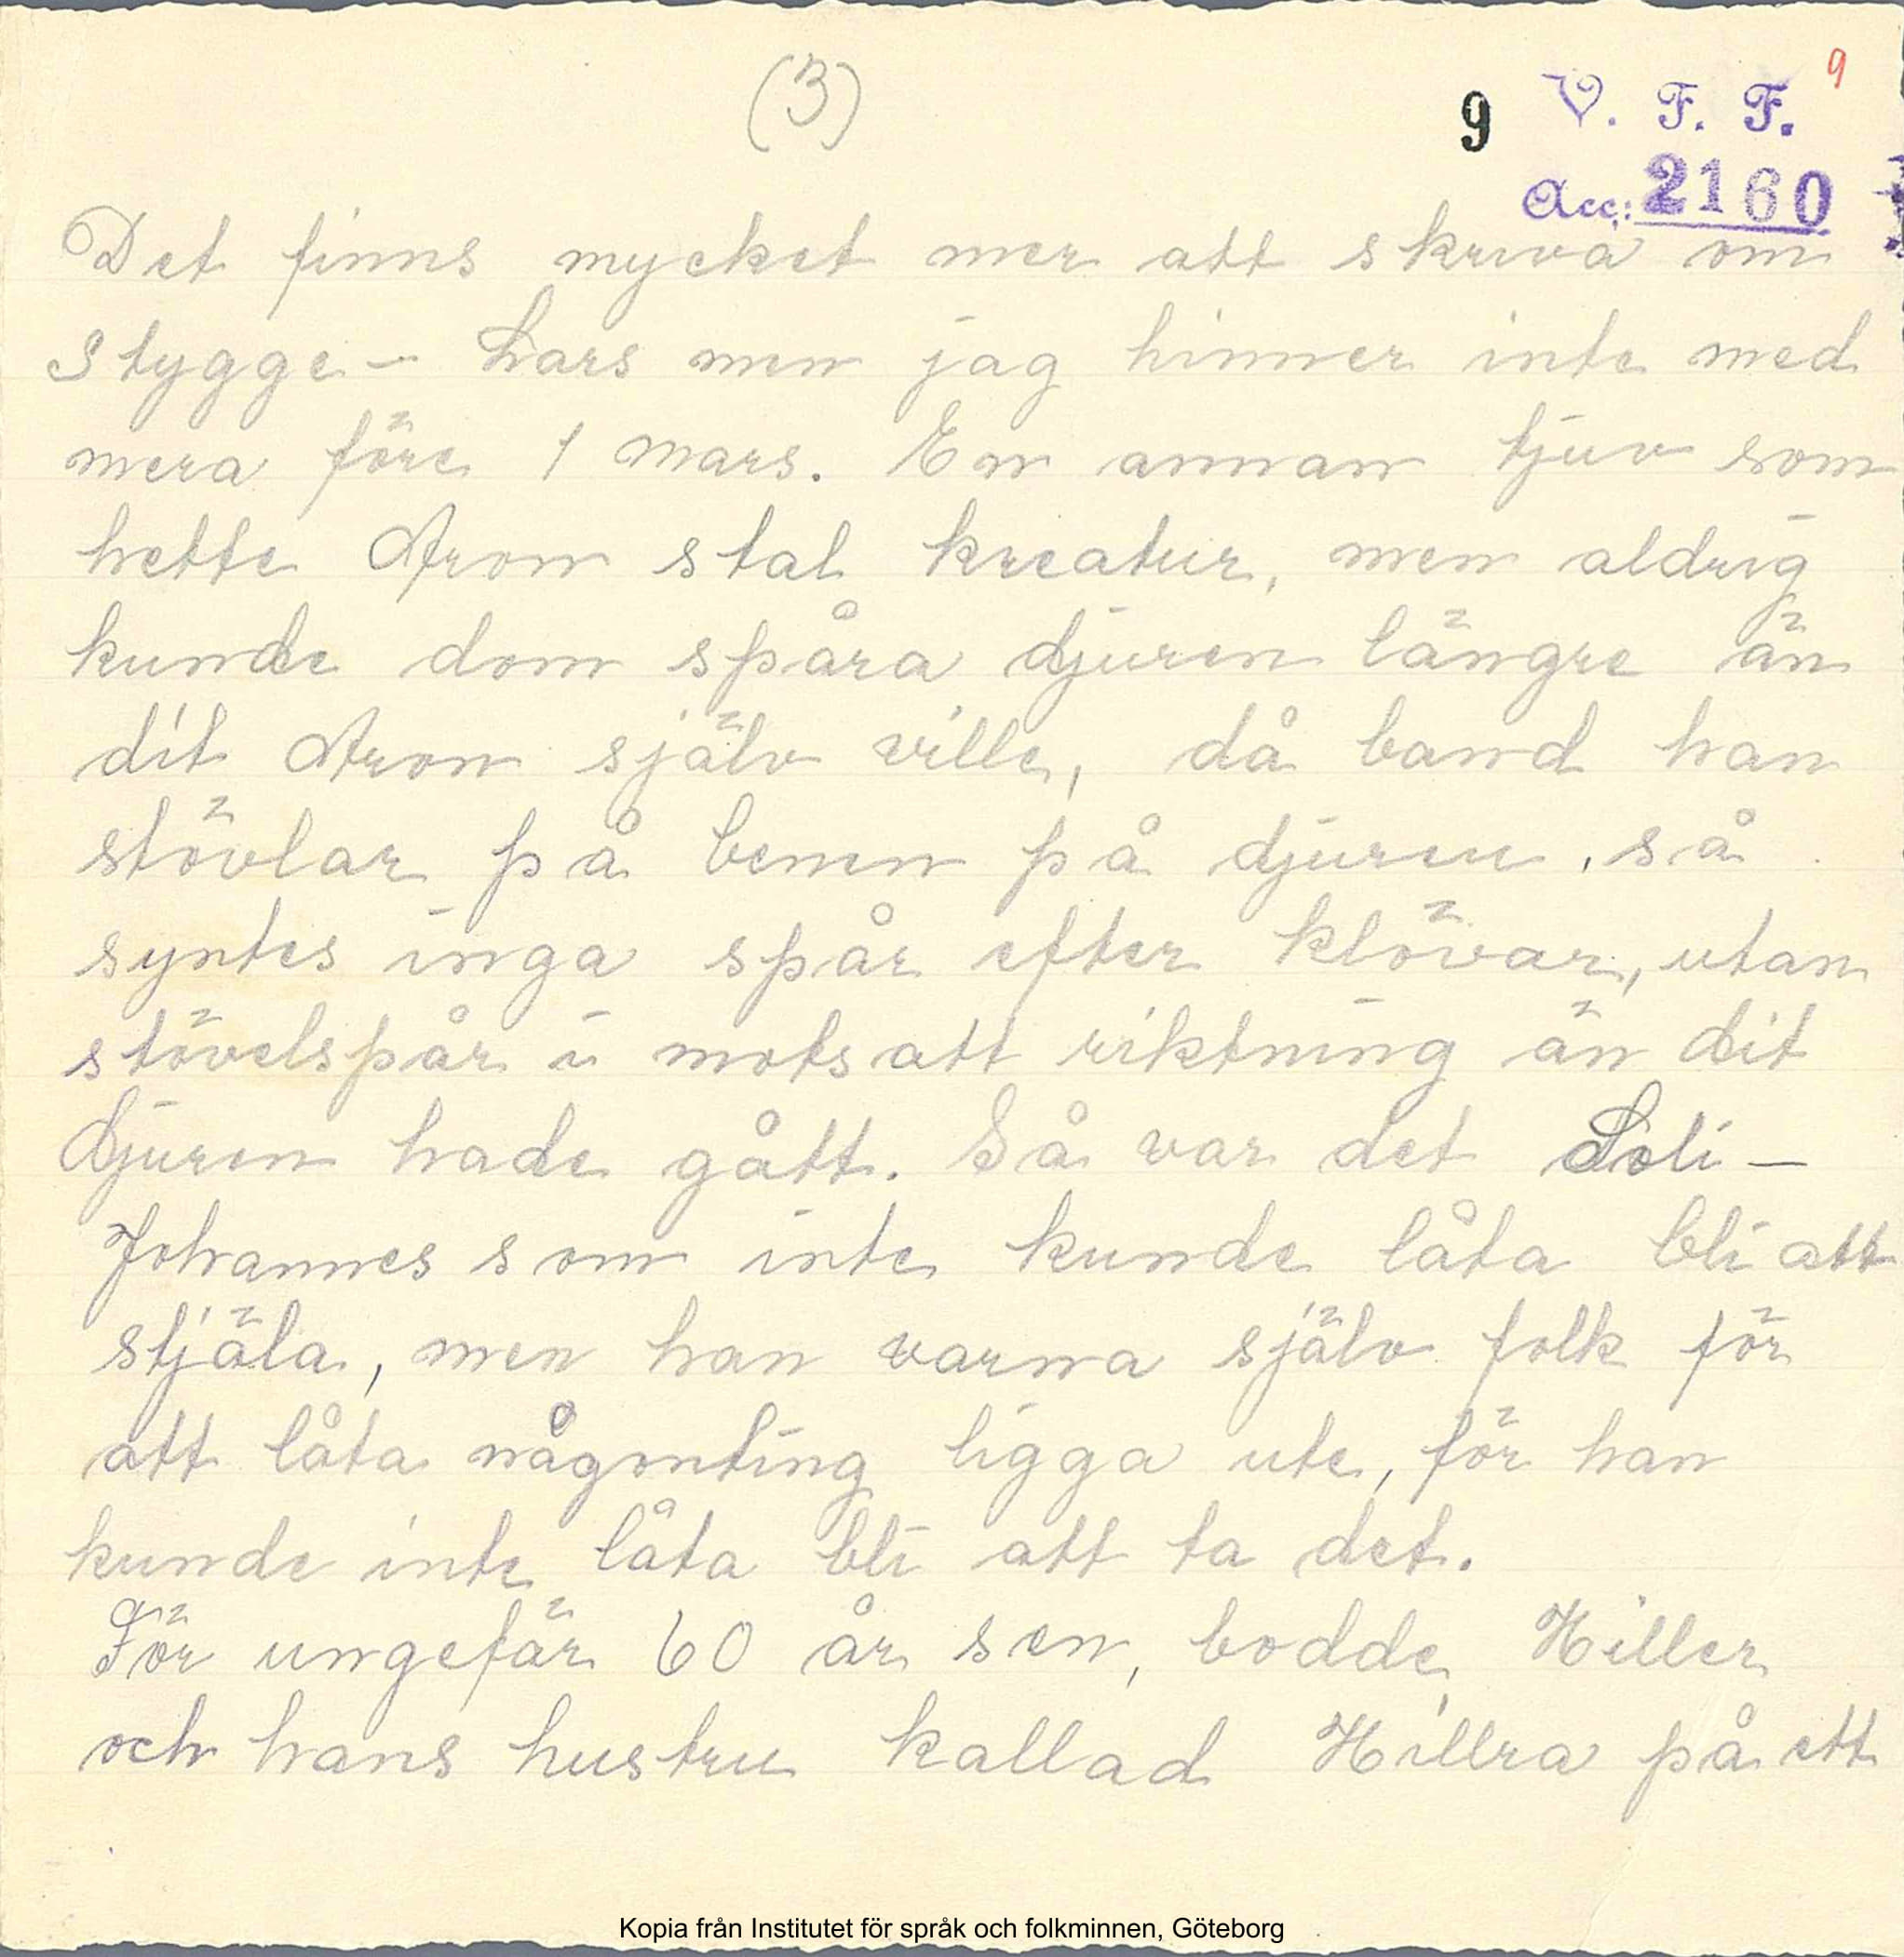 (3)
9
9 V. F. F.
Acc: 2160
Det finns mycket mer att skriva om
Stygge- Lars men jag hinner inte med
mera före 1 mars. En annan tjuv som
hette Aron stal kreatur, men aldrig
kunde dom spåra djuren längre än
dit Aron själv ville, då band han
stövlar på benen på djuren, så
syntes inga spår efter klövar, utan
stövelspår i motsatt riktning än dit
djuren hade gått. Så var det Soli-
Johannes som inte kunde låta bli att
stjäla, men han varna själv folk för
att låta någonting ligga ute, för han
kunde inte låta bli att ta det.
För ungefär 60 år sen, bodde Hiller
och hans hustru kallad Hillra på ett
Kopia från Institutet för språk och folkminnen, Göteborg